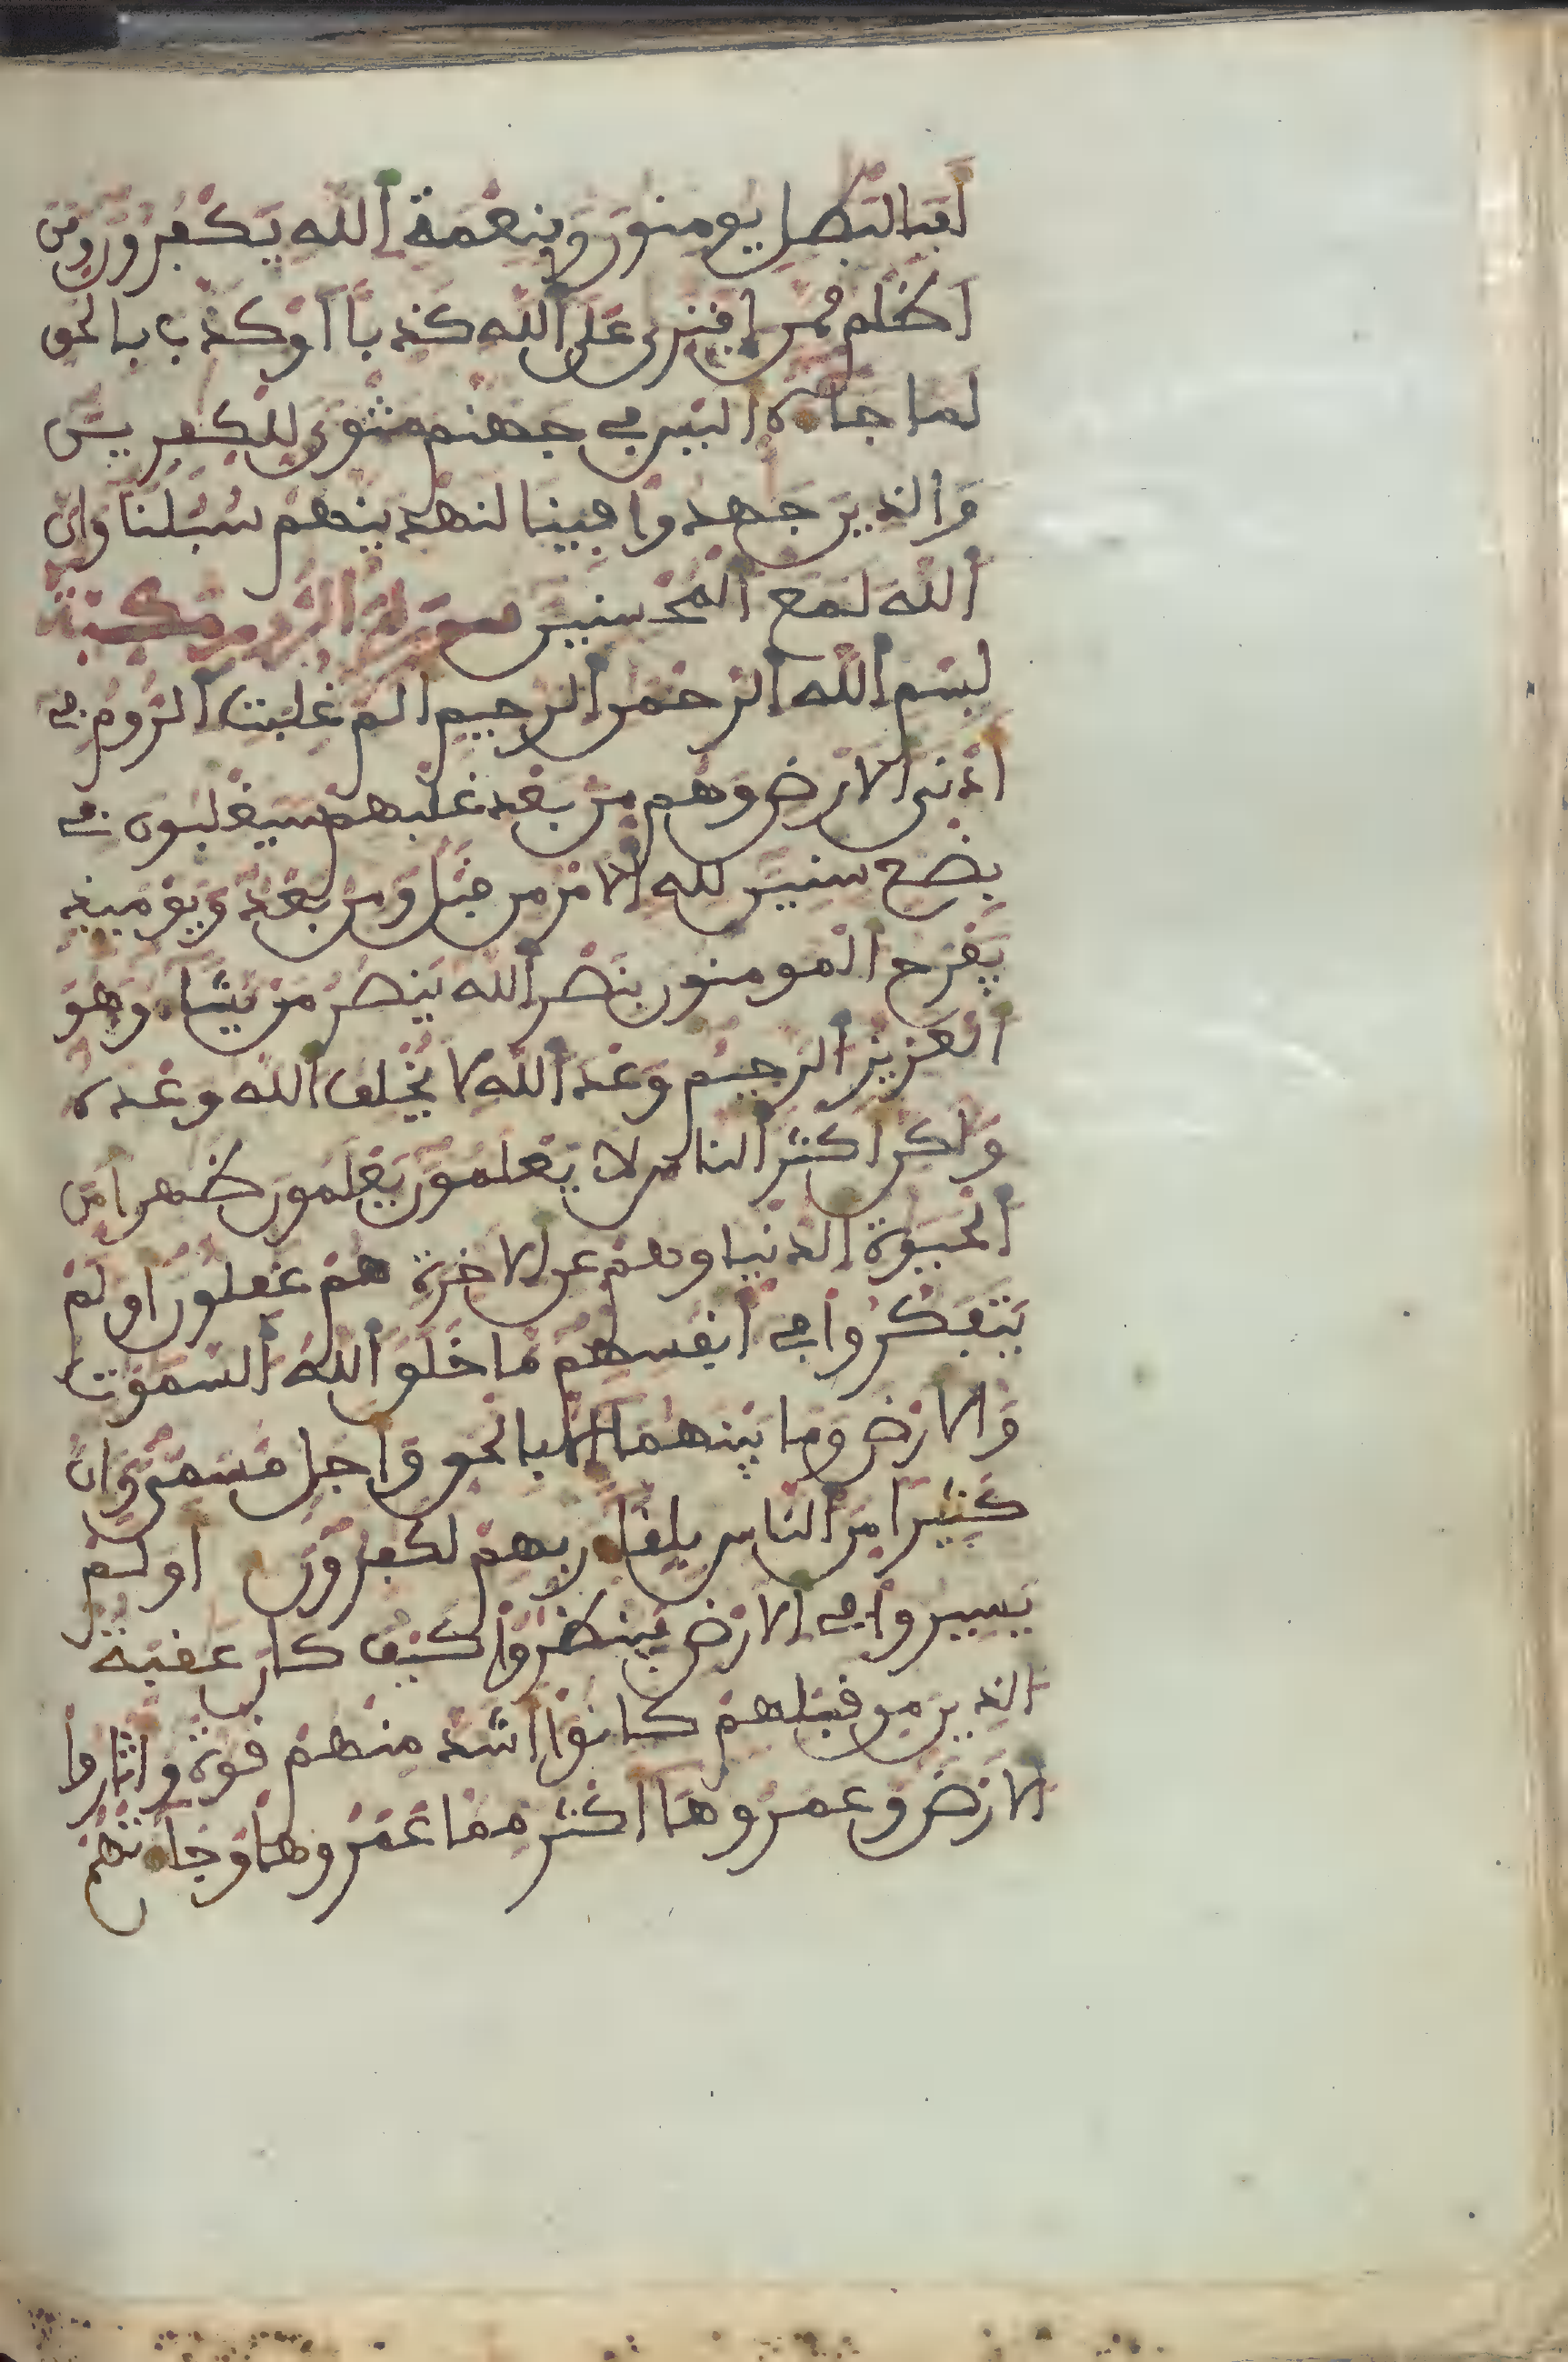 افبالبطل يومنون وبنعمة الله يكفرون ومن
اظلم ممن افترى على الله كذبا او كذب بالحق
لما جاءه اليس في جهنم مثوى للكفرين
والذين جهدوا فينا لنهدينهم سبلنا وان
الله لمع المحسنين سورة الروم مكية
بسم الله الرحمن الرحيم الم غلبت الروم في
ادنى الارض وهم من بعد غلبهم سيغلبون في
بضع سنين لله الامر من قبل ومن بعد ويوميذ
يفرح المومنون بنصر الله ينصر من يشاء وهو
العزيز الرحيم وعد الله لا يخلف الله وعده
ولكن اكثر الناس لا يعلمون يعلمون ظهرا من
الحيوة الدنيا وهم عن الاخرة هم غفلون اولم
يتفكروا في انفسهم ما خلق الله السموت
والارض وما بينهما الا بالحق واجل مسمى وان
كثيرا من الناس بلقاء ربهم لكفرون اولم
يسيروا في الارض فينظروا كيف كان عقبة
الذين من قبلهم كانوا اشد منهم قوة واثاروا
الارض وعمروها اكثر مما عمروها وجاءتهم